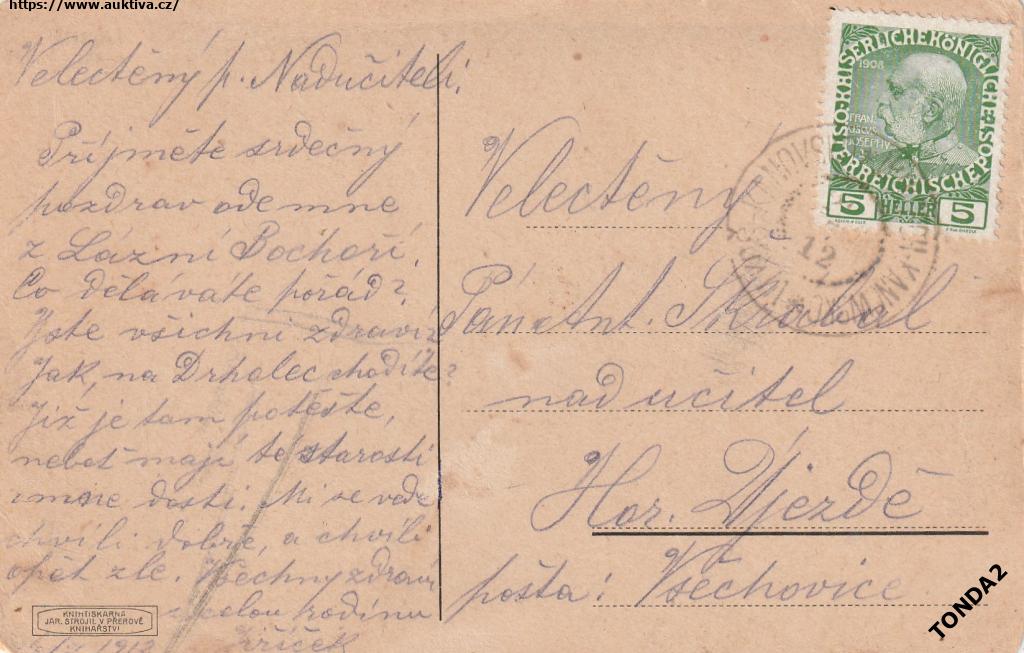 https://www.auktiva.cz/
Velectěný p. Nadučiteli.
Příjměte srdečný
pozdrav odemne
z Lázní Bochoří.
Co děláváte pořád?
Jste všichni zdraví?
Jak, na Drhalec chodíte?
Již je tam potěšte,
neboť mají té starosti
dosti. Mi se vede
chvíli dobře, a chvíli
opět zle. Všechny zdraví
celou rodinu
1912
KNIHTISKÁRNA
JAR. STROJIL V PŘEROVĚ
KNIHAŘSTVÍ
KAISERLICHE KÖNIGLICHE
ÖSTERREICHISCHE POST
1908
FRAN
CISCVS
JOSEPH IV
5 HELLER 5
12
Velectěný
Pán Ant.
nadučitel
Hor. Újezdě
pošta: Všechovice
TONDA2